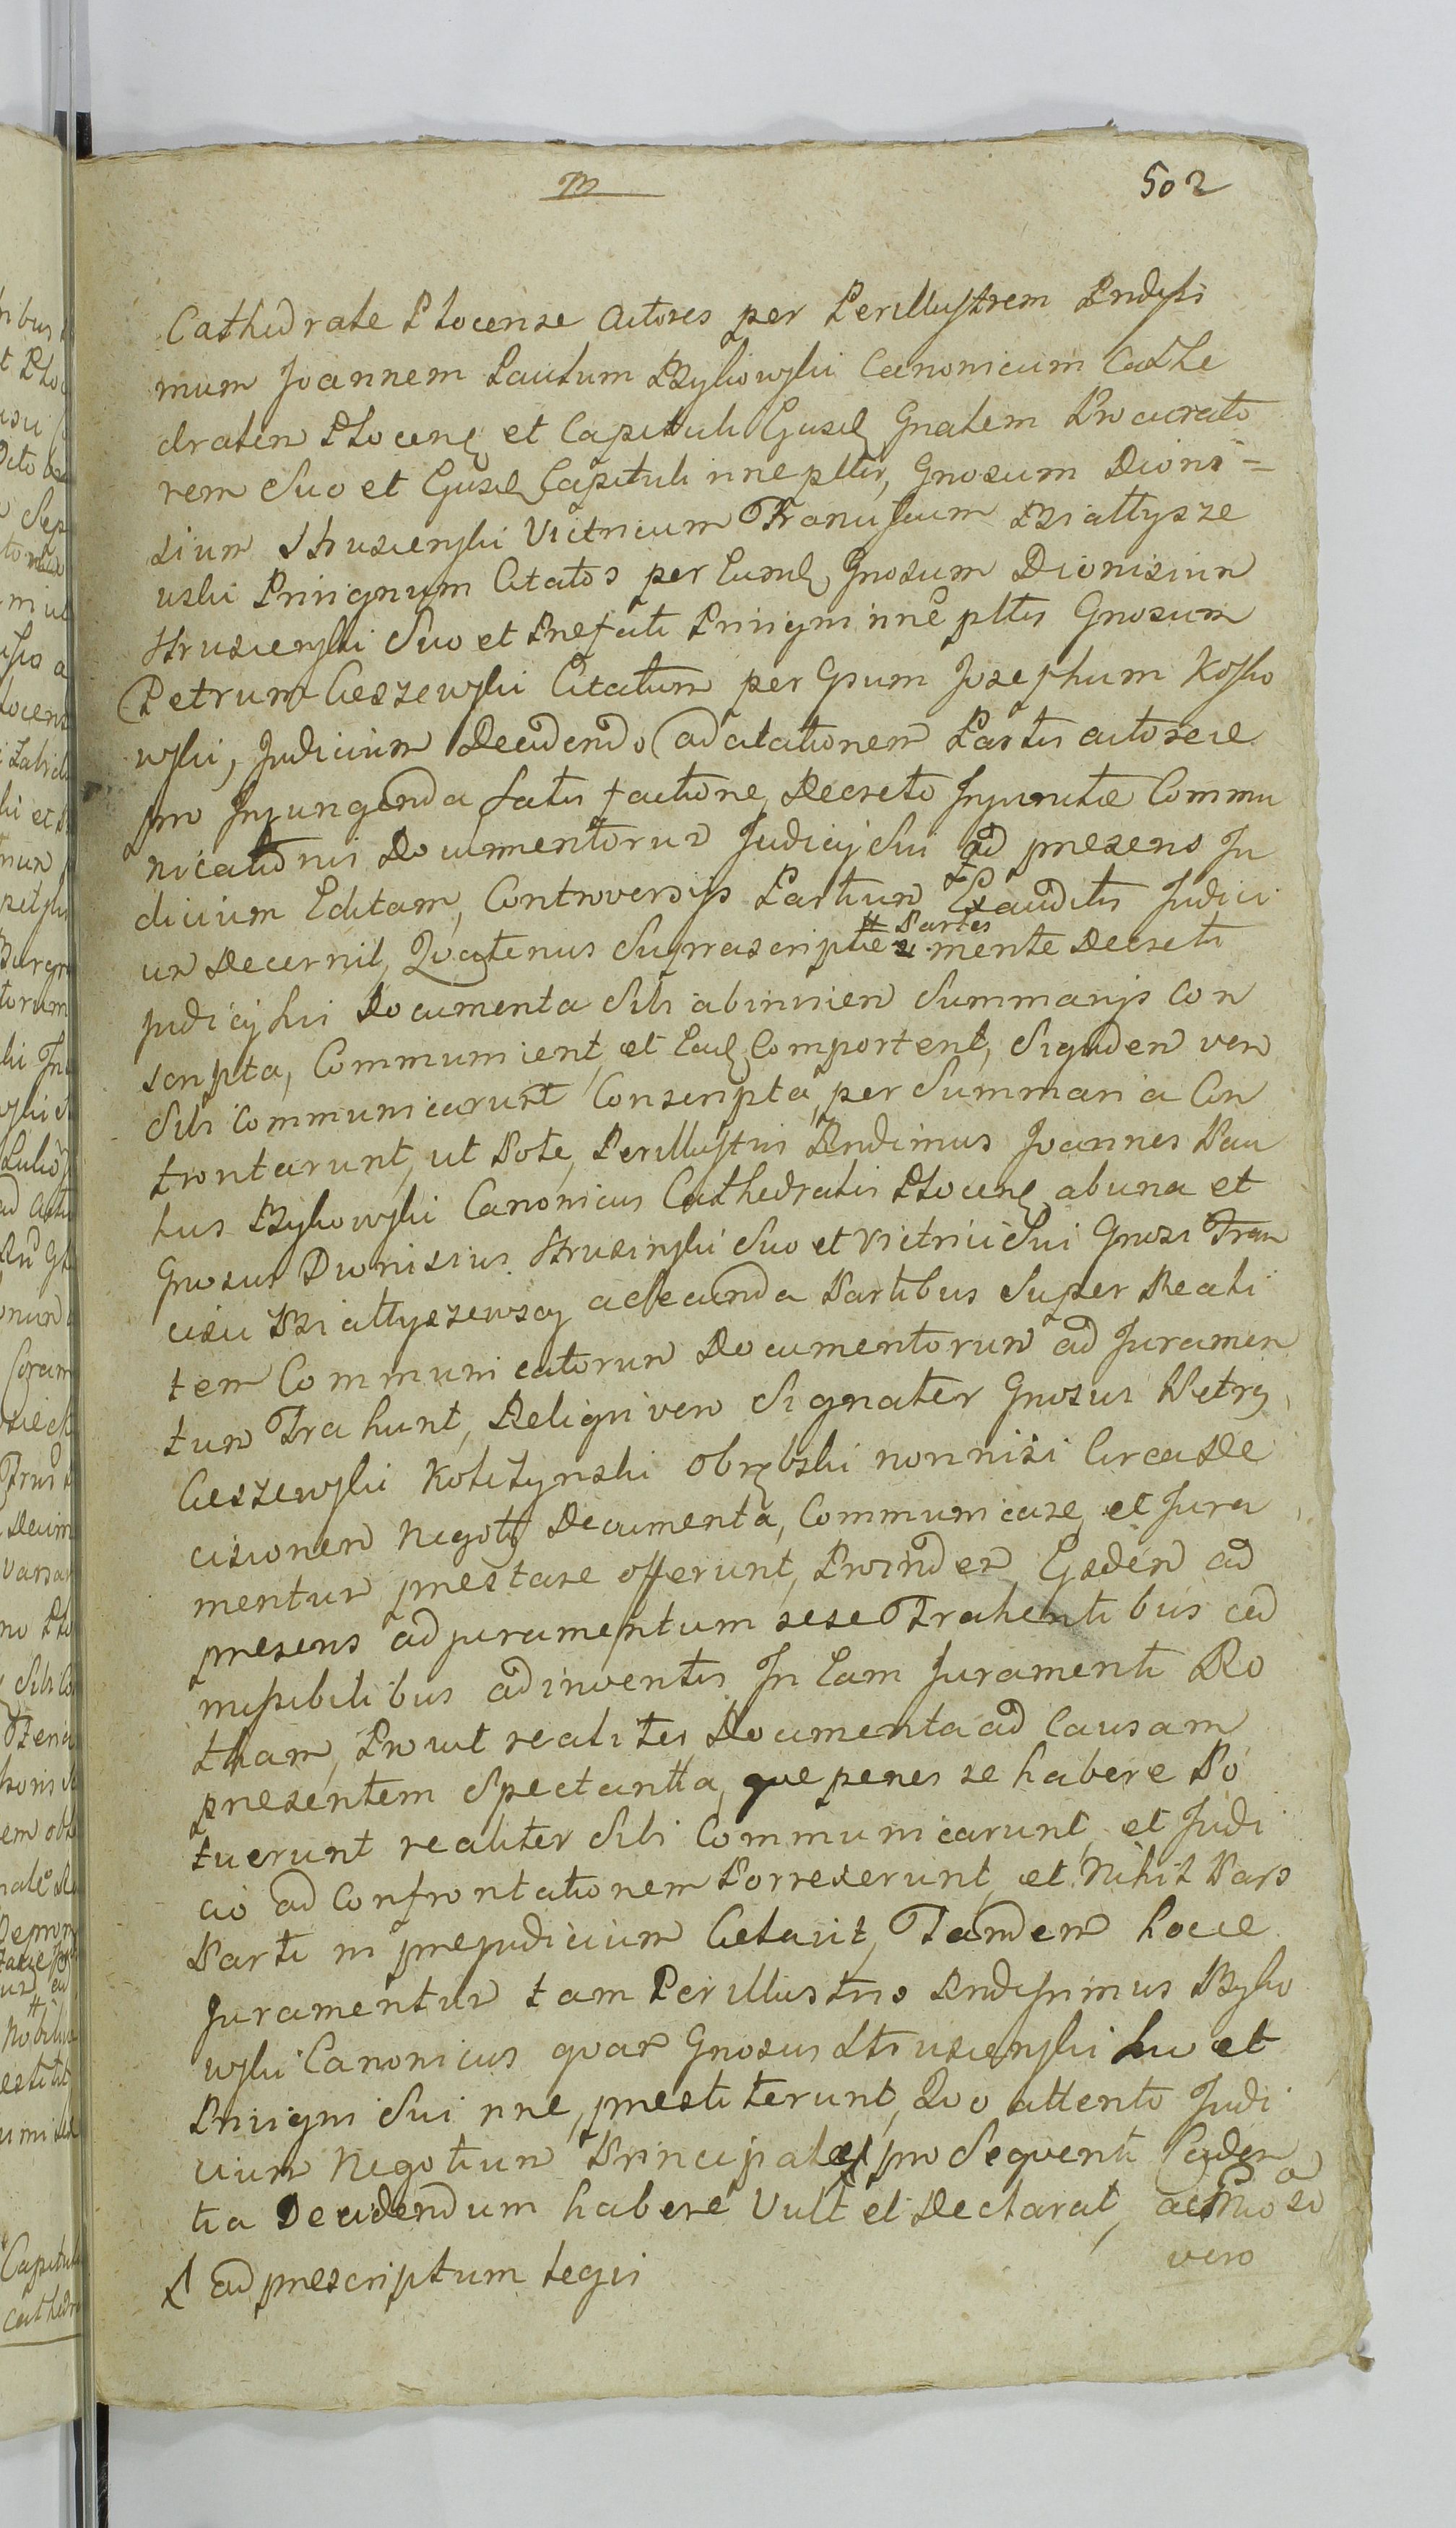 m 502
Cathedrale Plocense Actores per Perillustrem Rndissi
mum Joannem Paulum Bykowski Canonicum Cathe
dralem Plocens et Capituli Ejusd Gnalem Procurato
rem Suo et Ejusd Capituli nne pltis, Gnosum Dioni=
sium Strusienski Vitricum Franciscum Białłysze
wski Privignum Citatos per Eumd Gnosum Dionisium
Strusienski Suo et Prefati Privigni nne pltis Gnosum
Petrum Cieszewski Citatum per Gsum Josephum Kosko
wski, Judicium Decidendo adcitationem Partis actoreae
pro Injungenda Satis factione Decreto Injunctae Commu
nicationis Documentorum Judicij Sui ad presens Ju
dicium Editam, Controversijs Partium Exauditis Judici
um Decernit, Quatenus Suprascriptae Partes mente Decreti
judicij Sui Documenta Sibi abinvicem Summarijs Con
scripta, Communicent et Ead Comportent, Siquidem vero
Sibi Communicarunt Conscripta per Summaria Con
frontarunt, ut Pote, Perillustris Rndimus Joannes Pau
lus Bykowski Canonicus Cathedralis Plocens abuna et
Gnosus Dionisius Strusinski Suo et Vitrici Sui Gnosi Fran
cisci Białłyszewscy a Secunda Partibus Super Reali
tem Communicatorum Documentorum ad Juramen
tum Trahunt, Reliqui vero Signater Gnosus Petrus
Cieszewski Obrębski nonnisi Circa De
cisionem Negotij Documenta, Communicare, et Jura
mentum prestare offerunt, Proinde Eisdem ad
presens ad juramentum sese Trahentibus ad
missibilibus adinventis In Eam Juramenti Ro
tham, Prout realiter Documenta ad Causam
presentem Spectantia, que penes se habere Po
tuerunt realiter Sibi Communicarunt, et Judi
cio ad Confrontationem Porrexerunt, et Nihil Pars
Parti in prejudicium Celavit, Tandem hocce
Juramentum tam Perillustris Rndissimus Byko
wski Canonicus quam Gnosus Strusienski Suo et
Privigni Sui nne, prestiterunt, Quo attento Judi
cium Negotium Principale pro Sequenti Caden
tia Decidendum habere Vult et Declarat,
vero
ad prescriptum legis